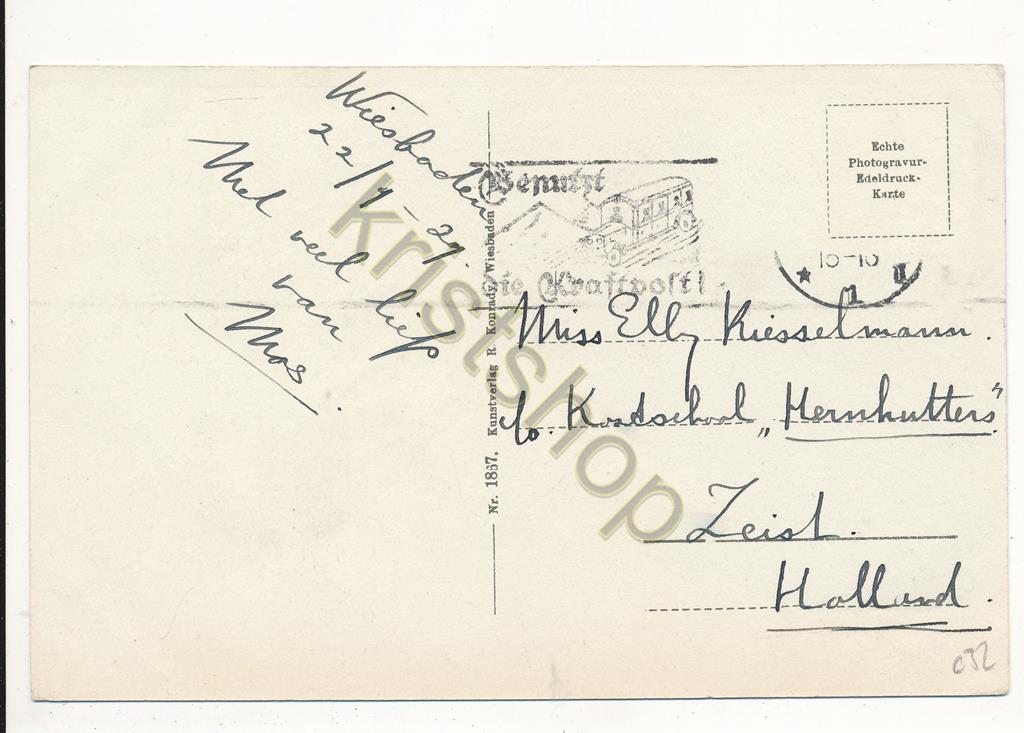 Wiesbaden
22/7-29.
Met veel liefs
van
Mos.
Nr. 1867. Kunstverlag R. Konrady, Wiesbaden
Benutzt
die Kraftpost!
Echte
Photogravur-
Edeldruck-
Karte
1
Miss Elly Kiesselmann.
c/o. Kostschool „Hernhutters”
Zeist.
Holland.
c32
kristshop